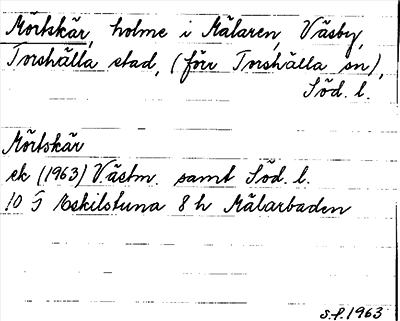 Mörtskär, holme i Mälaren, Väsby,
Torshälla stad, (förr Torshälla sn),
Söd. l.
Mörtskär
ek (1963) Västm. samt Söd. l.
10 G Eskilstuna 8 h Mälarbaden
S.P. 1963